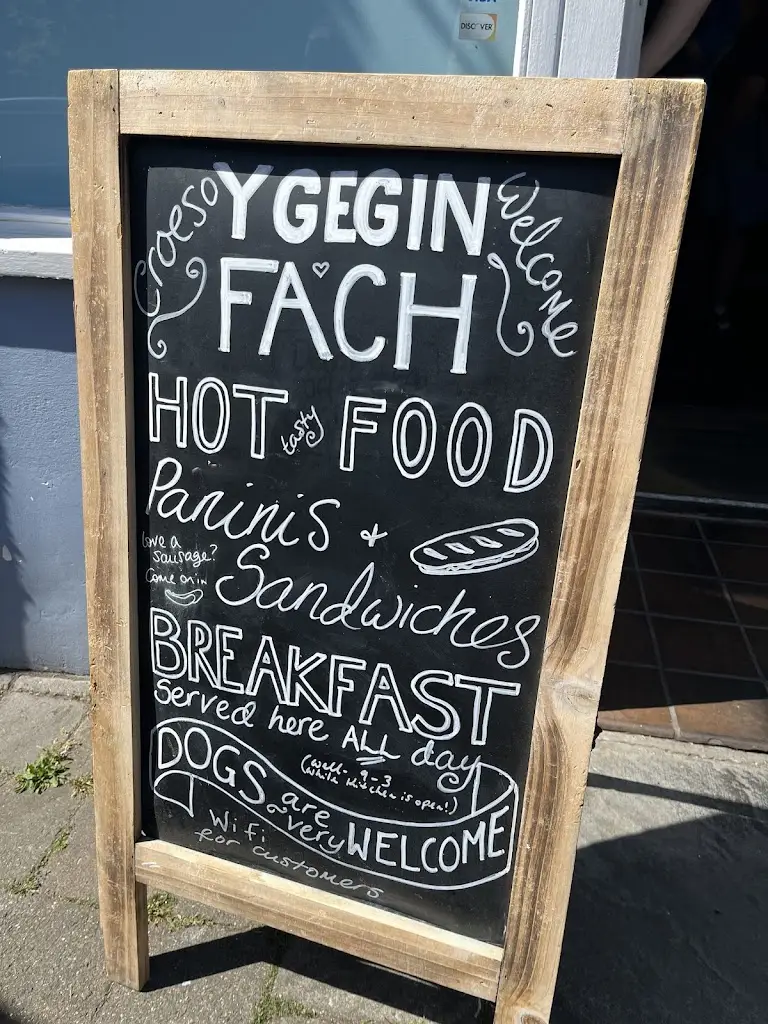 VISA
DISCOVER
Croeso
Y GEGIN
Welcome
FACH
HOT tasty FOOD
Paninis +
Love a
sausage?
Come on in
Sandwiches
BREAKFAST
Served here ALL day
(well- 9-3
while kitchen is open!)
DOGS are
very WELCOME
Wifi
for customers